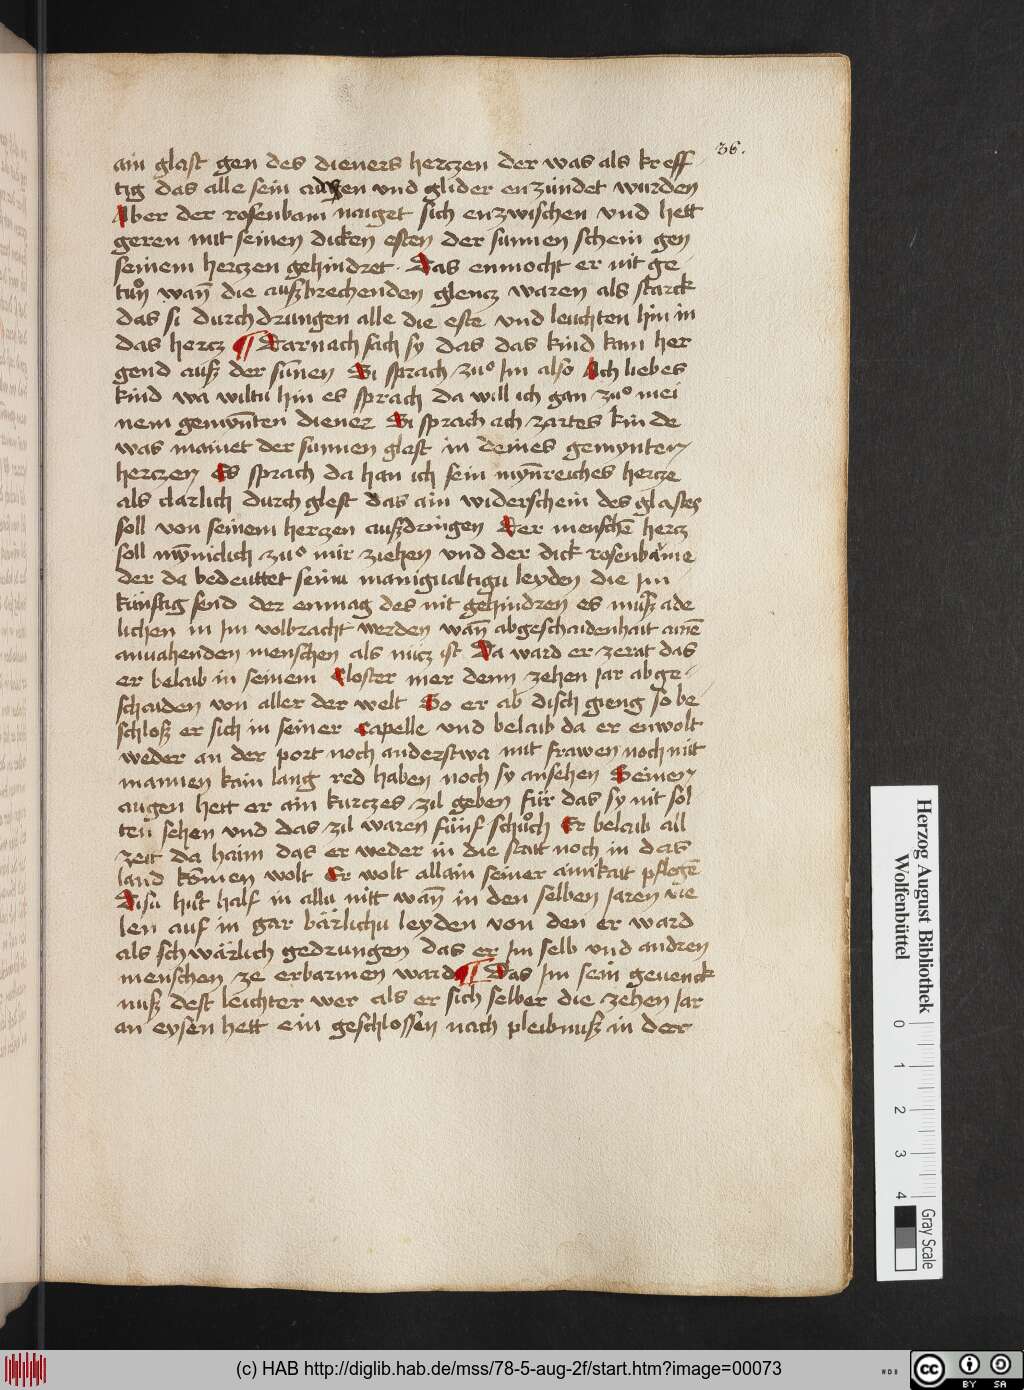 36.
ain glast gen des dieners herczen der was als kreff
tig das alle sein adern und glider enzündet wurden
Aber der rosenbam naiget sich enzwischen und hett
geren mit seinen dicken esten der sunnen schein gen
seinem herczen gehindret. Das enmocht er nit ge
tuͦn wañ die auszbrechenden glencz waren als starck
das si durchdrungen alle die este und leuchten hin in
das hercz ¶ Darnach sach sy das das kind kam her
gend ausz der suñen Si sprach zuͦ Im also Ach liebes
kind wa wiltu hin es sprach da will ich gan zuͦ mei
nem gemynten diener Si sprach ach zartes kinde
was mainet der sunnen glast in deines gemynten
herczen Es sprach da han ich sein mynreiches hercze
als clarlich durchglest das ain widerschein des glastes
soll von seinem herczen auszdringen Der menschē hercz
soll mynniclich zuͦ mir ziehen und der dick rosenbäme
der da bedeuttet seinu manigualtigu leyden die Im
künftig send der enmag des nit gehindren es musz ade
lichen in Im volbracht werden wañ abgeschaidenhait ainē
anuahenden menschen als nücz ist Da ward er zerat das
er belaib in seinem Closter mer denn zehen Jar abge
schaiden von aller der welt So er ab disch gieng so be
schlosz er sich in seiner Capelle und belaib da er enwolt
weder an der port noch anderstwa mit frawen noch mit
mannen kain lang red haben noch sy ansehen Seinen
augen hett er ain kurczes zil geben für das sy nit sol
ten sehen und das zil waren fünf schuͦch Er belaib all
zeit da haim das er weder in die statt noch in das
land komen wolt Er wolt allain seiner ainikait pflegē
Disu huͦt half in allu nitt wañ in den selben Jaren vie
len auf in gar bärlichu leyden von den er ward
als schwärlich gedrungen das er Im selb und andren
menschen ze erbarmen ward ¶ Das Im sein geuenck
nusz dest leichter wer als er sich selber die zehen Jar
an eysen hett ein geschlossen nach pleibnusz in der
Herzog August Bibliothek
Wolfenbüttel
0 1 2 3 4
Gray Scale
(c) HAB http://diglib.hab.de/mss/78-5-aug-2f/start.htm?image=00073
WDB
cc BY SA